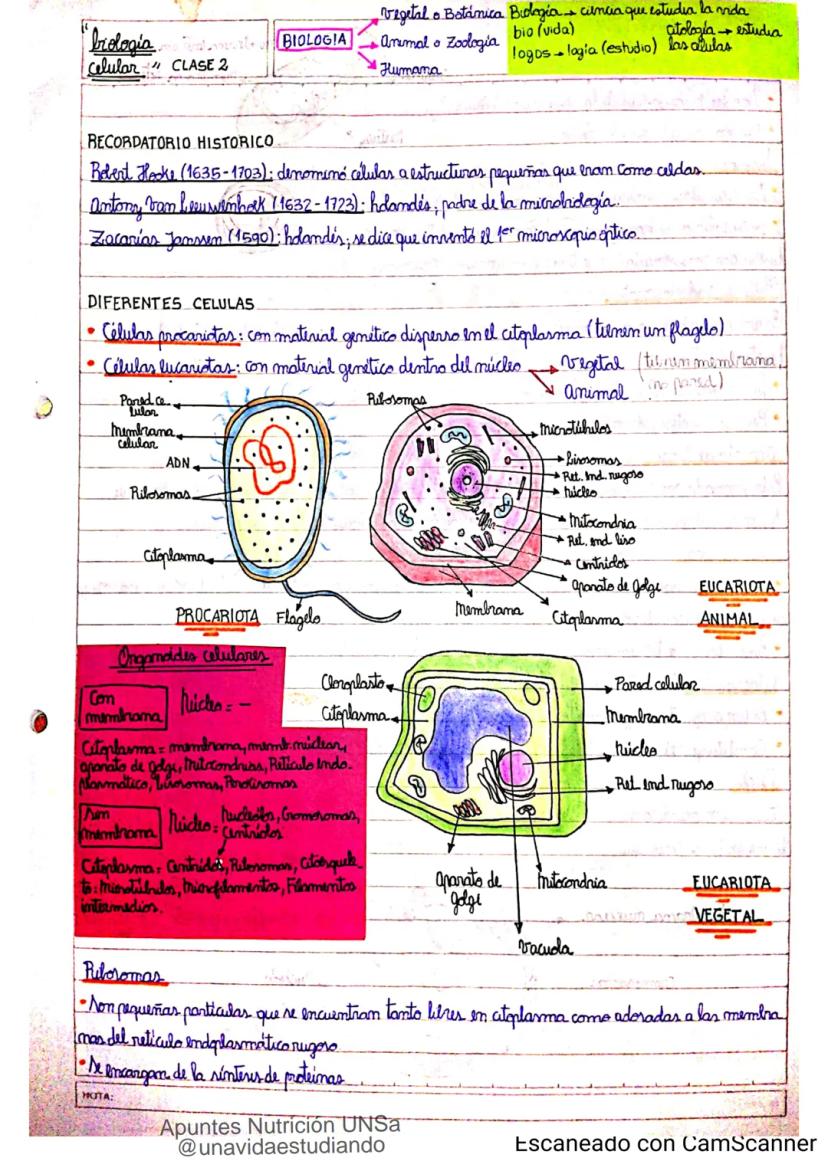 "biología
celular" CLASE 2
BIOLOGIA
Vegetal o Botánica
Animal o Zoología
Humana
Biología → ciencia que estudia la vida
bio (vida)
citología → estudia
logos → logía (estudio) las células
RECORDATORIO HISTORICO
Robert Hooke (1635-1703): denominó células a estructuras pequeñas que eran como celdas.
Antony Van Leeuwenhoek (1632-1723): holandés, padre de la microbiología.
Zacarías Janssen (1590): holandés, se dice que inventó el 1er microscopio óptico.
DIFERENTES CELULAS
• Células procariotas: con material genético disperso en el citoplasma (tienen un flagelo)
• Células eucariotas: con material genético dentro del núcleo → Vegetal (tienen membrana,
no pared)
Animal
Pared ce
lular
Membrana
celular
ADN
Ribosomas
Citoplasma
PROCARIOTA
Flagelo
Ribosomas
Microtúbulos
Lisosomas
Ret. End. rugoso
Núcleo
Mitocondria
Ret. End liso
Centriolos
Aparato de Golgi
Citoplasma
Membrana
EUCARIOTA
ANIMAL
Organoides celulares
Con
membrana
Núcleo = -
Citoplasma = membrana, memb. núclear,
aparato de Golgi, Mitocondrias, Retículo Endo-
plasmático, Lisosomas, Peroxisomas
Sin
membrana
Núcleo = Nucleolos, Cromosomas,
Centriolos
Citoplasma = Centriolos, Ribosomas, Citoesquele-
to: Microtúbulos, Microfilamentos, Filamentos
intermedios.
Cloroplasto
Citoplasma
Pared celular
Membrana
Núcleo
Ret. End rugoso
Aparato de
Golgi
Mitocondria
Vacuola
EUCARIOTA
VEGETAL
Ribosomas
• Son pequeñas partículas que se encuentran tanto libres en citoplasma como adosadas a las membra
nas del retículo endoplasmático rugoso
• Se encargan de la síntesis de proteínas
NOTA:
Apuntes Nutrición UNSa
@unavidaestudiando
Escaneado con CamScanner